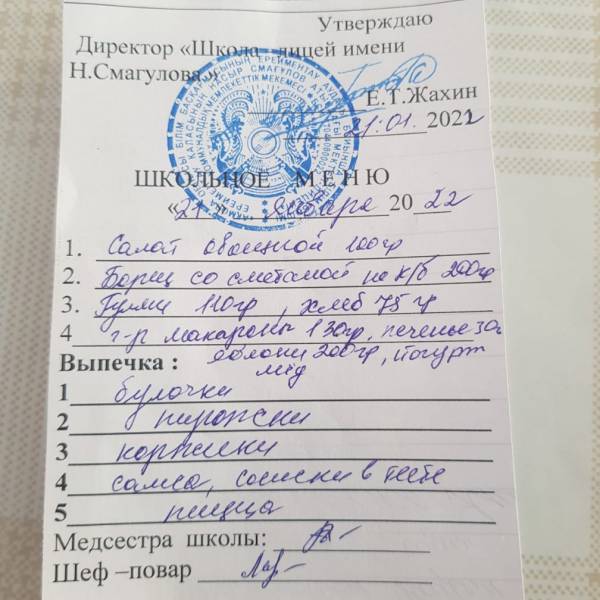 Утверждаю
Директор «Школа – лицей имени
Н.Смагулова»
Е.Т.Жахин
21.01. 2022
ШКОЛЬНОЕ МЕНЮ
«21» января 2022
1. Салат овощной 100гр
2. Борщ со сметаной на к/б 200гр
3. Гуляш 110гр, хлеб 75 гр
4 г-р макароны 130гр, печенье 30г
яблоки 200гр, йогурт
Выпечка : мёд
1 булочки
2 пирожки
3 коржики
4 самса, сосиски в тесте
5 пицца
Медсестра школы:
Шеф –повар